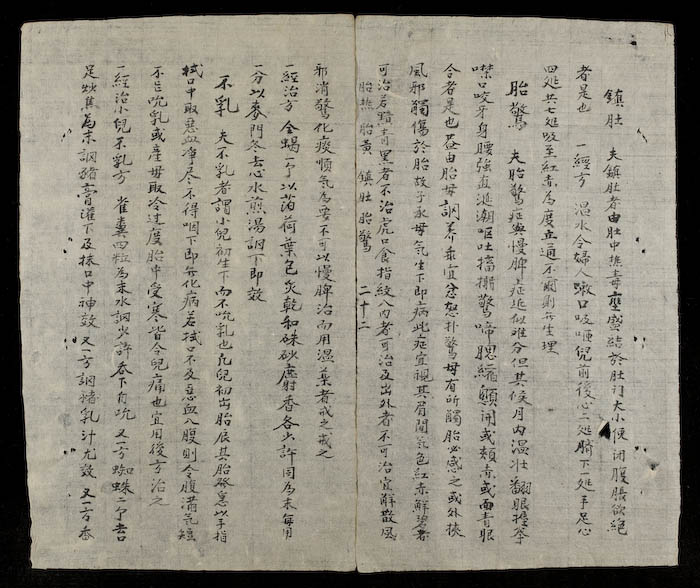 鎮肚　夫鎮肚者由肚中㷊毒壅盛結於肚門大小便闭腹脹欲絕
者是也　一經方　溫水令婦人嗽口吸咂兒前後心二処臍下処手足心
四処共七処吸至紅赤為度立通不爾則無生理
胎驚　夫胎驚症與慢脾症近似难分但其候月內溫壯翻眼握拳
噤口咬牙身腰強直涎潮嘔吐搐搦驚啼腮縮顖開或頰赤或面青眼
合者是也盖由胎母調养乖宜忿怒扑驚母有所觸胎必感之或外挾
風邪觸傷於胎故子乘母氣生下即病此症宜視其眉間氣色紅赤鮮碧者
可治若黯青黑者不治虎口食指紋入內者可治反出外者不可治宜解散風
胎㷊　胎黃　鎮肚　胎驚　二十二
邪消驚化痰順氣為要不可以慢脾治而用溫藥者戒之戒之
一經治方　全蝎一个以薄荷葉包炙乾和硃砂麝香各少許同為末每用
一分以麥門冬去心水煎湯調下即效
不乳　夫不乳者謂小兒初生下而不吮乳也凡兒初出胎辰其胎發惡以手指
拭口中取惡血净尽不得咽下即無化病若拭口不及惡血入腹則令腹滿氣短
不能吮乳或產母取冷过度胎中受寒皆令兒痛也宜用後方治之
一經治小兒不乳方　雀糞四粒為末水調少許吞下自吮　又一方蜘蛛一个去口
足炒焦為末調猪膏灌下及抹口中神效　又一方調猪乳汁尤效　又一方香